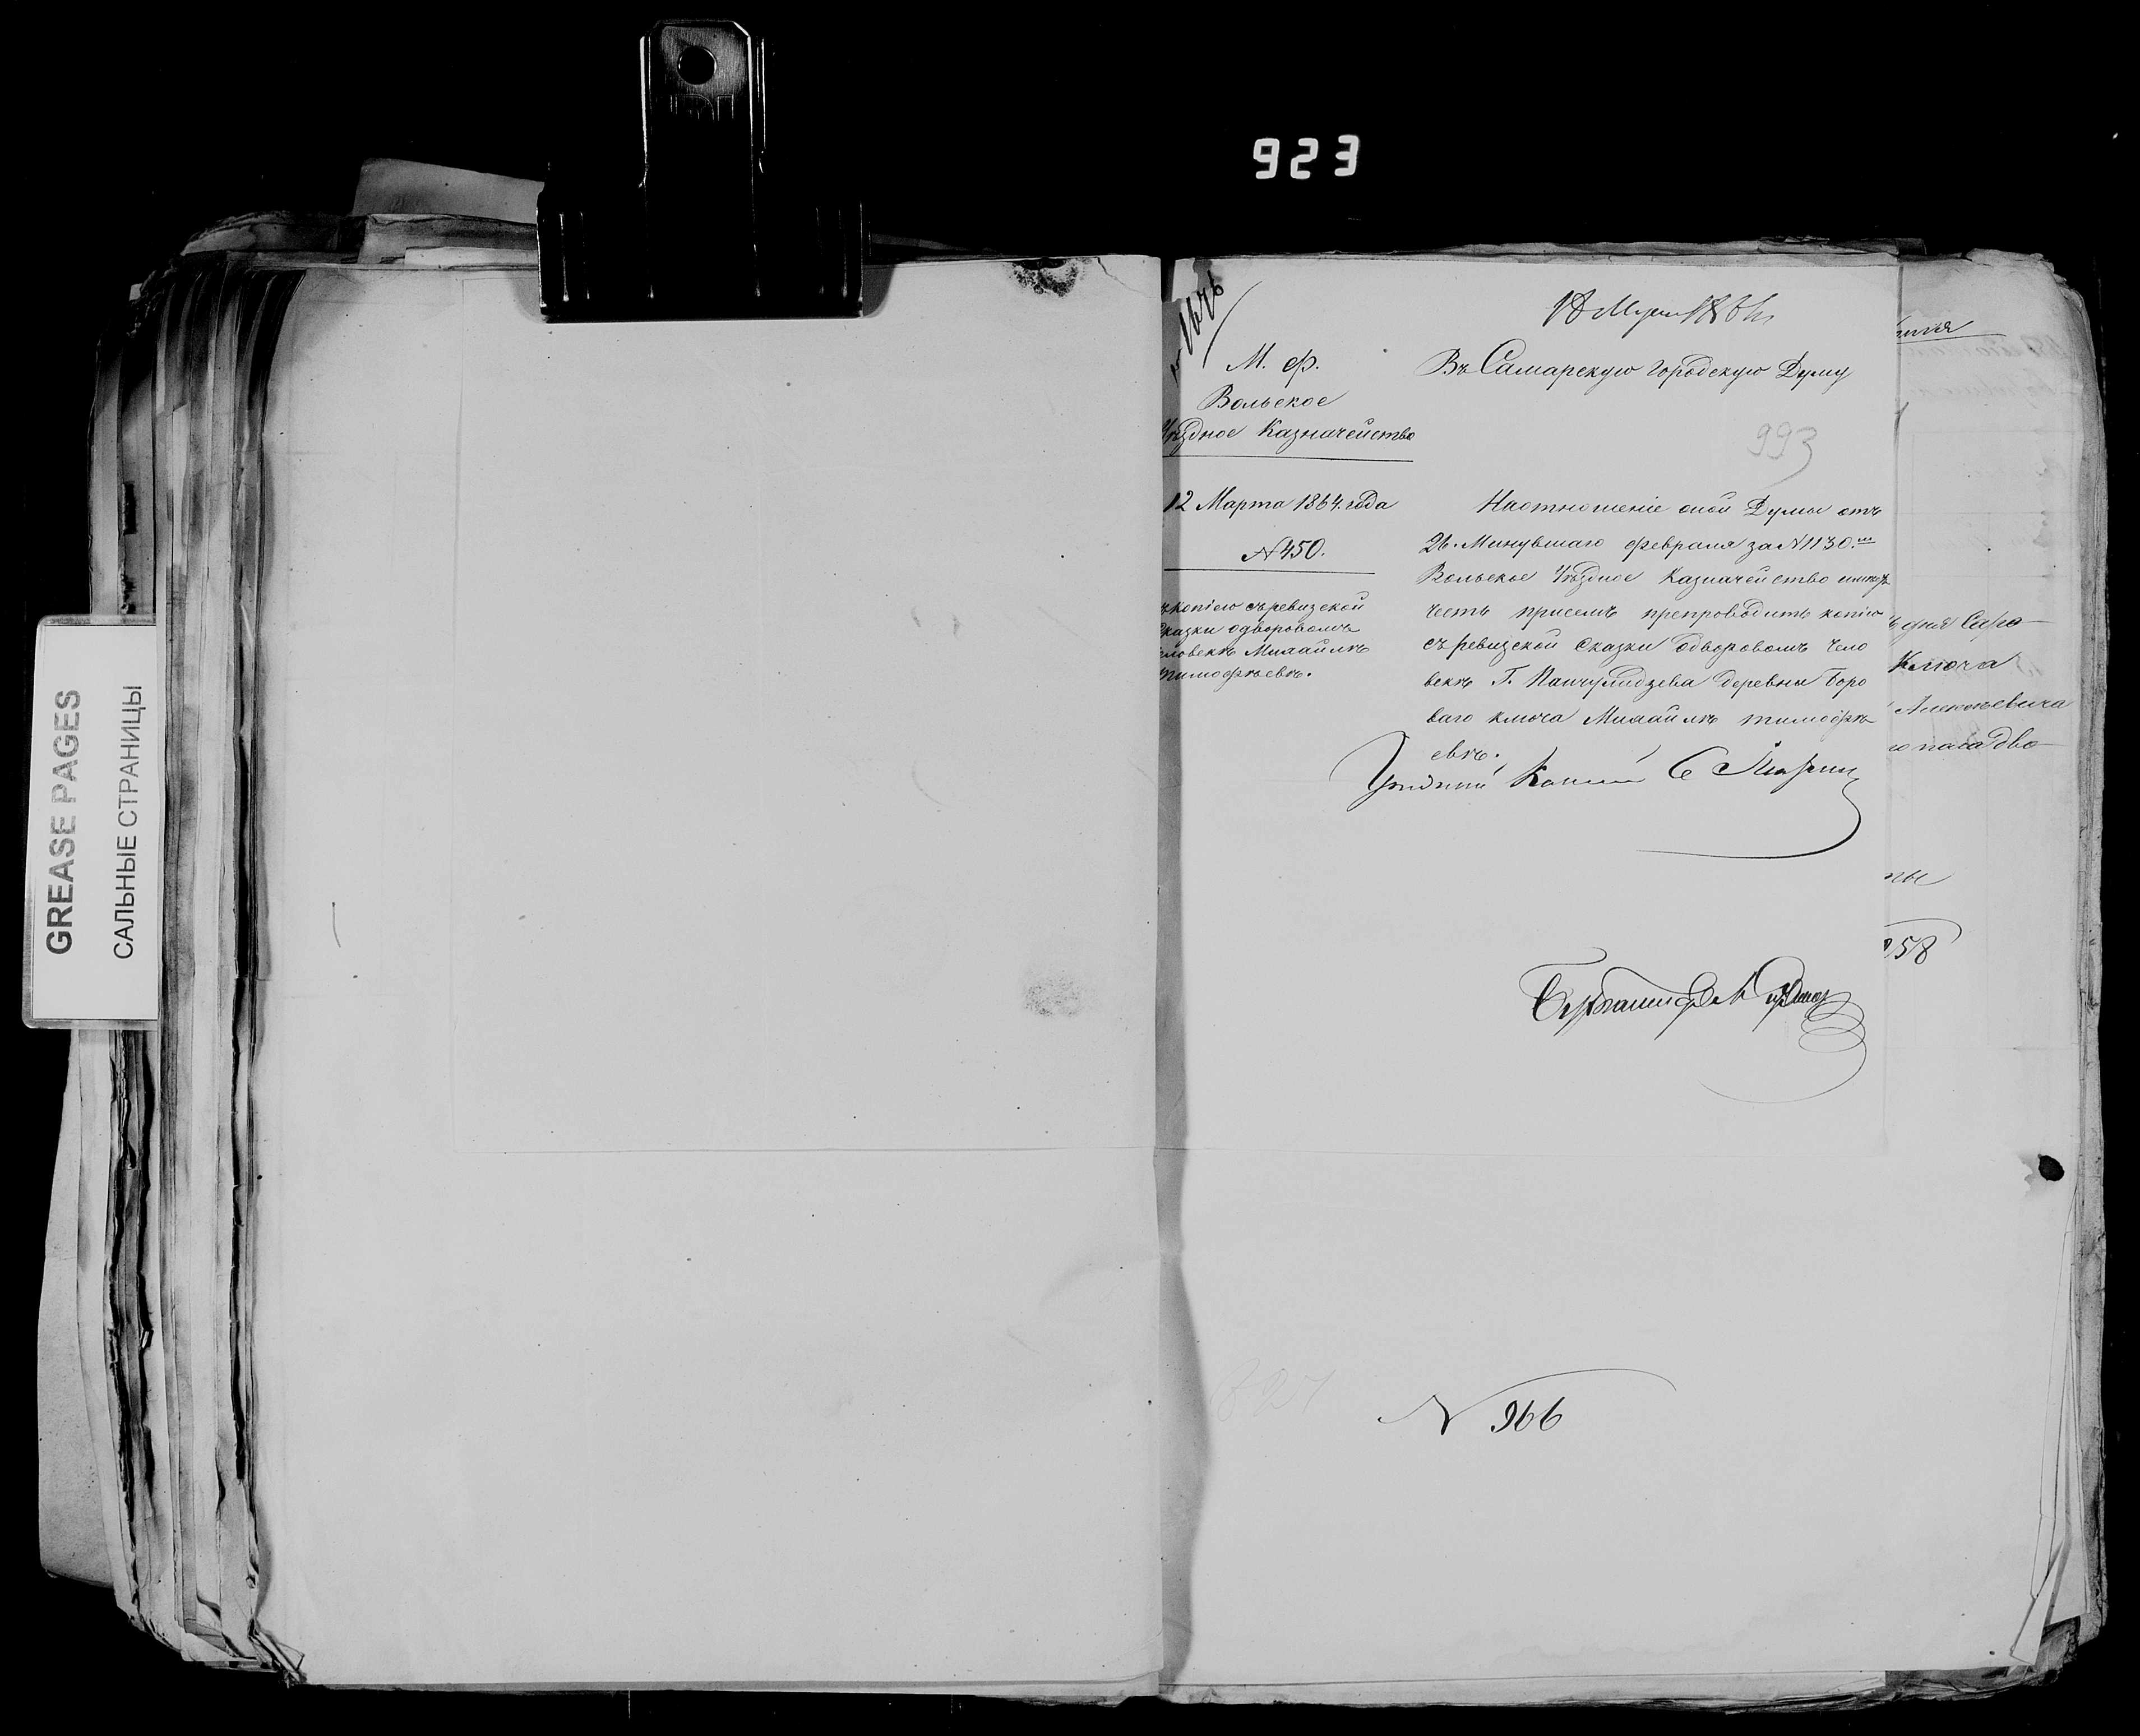 923
GREASE PAGES
САЛЬНЫЕ СТРАНИЦЫ
1676
18 Марта 1864
М. Ф.
Вольское
Уѣздное Казначейство
12 Марта 1864. года
№ 450.
съ копіею съ ревизской
сказки о дворовомъ
человекѣ Михайлѣ
Тимофѣевѣ.
Въ Самарскую Городскую Думу
993
На отношеніе оной Думы отъ
26. Минувшаго февраля за № 1130.
Вольское Уѣздное Казначейство имеетъ
честь присемъ препроводить копію
съ ревизской сказки о дворовомъ чело
векѣ Г. Панчулидзева деревни Боро
ваго ключа Михайлѣ Тимофѣ
евѣ.
Уездный Казначей С
Бухгалтеръ
№ 966
дня Сара
Ключа
Алексѣевича
58